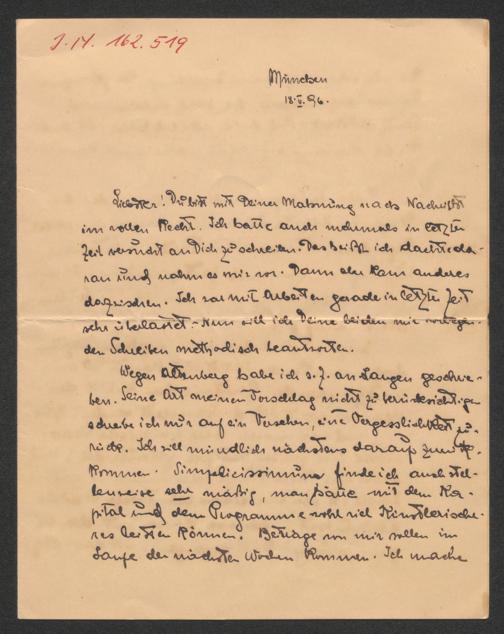 J.N. 162.519
München
18.V.96.
Liebster! Du bist mit Deiner Mahnung nach Nachricht
im vollen Recht. Ich hatte auch mehrmals in letzter
Zeit versucht an Dich zu schreiben. Das heißt ich dachte da-
ran und nahm es mir vor. Dann aber kam anderes
dazwischen. Ich war mit Arbeiten gerade in letzter Zeit
sehr überlastet. Nun will ich Deine beiden mir vorliegen-
den Schreiben methodisch beantworten.
Wegen Altenberg habe ich s. Z. an Langen geschrie-
ben. Seine Art meinen Vorschlag nicht zu berücksichtigen
schiebe ich nur auf ein Versehen, eine Vergesslichkeit zu-
rück. Ich will mündlich nächstens darauf zurück-
kommen. Simplicissimus finde ich auch stel-
lenweise sehr mäßig, man hätte mit dem Ka-
pital und dem Programme wohl viel Künstlerische-
res leisten können. Beiträge von mir sollen im
Laufe der nächsten Wochen kommen. Ich mache